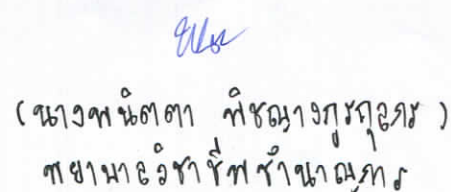 (นางพนิตตา พิชญางกูรกุลภร)
พยาบาลวิชาชีพชำนาญการ